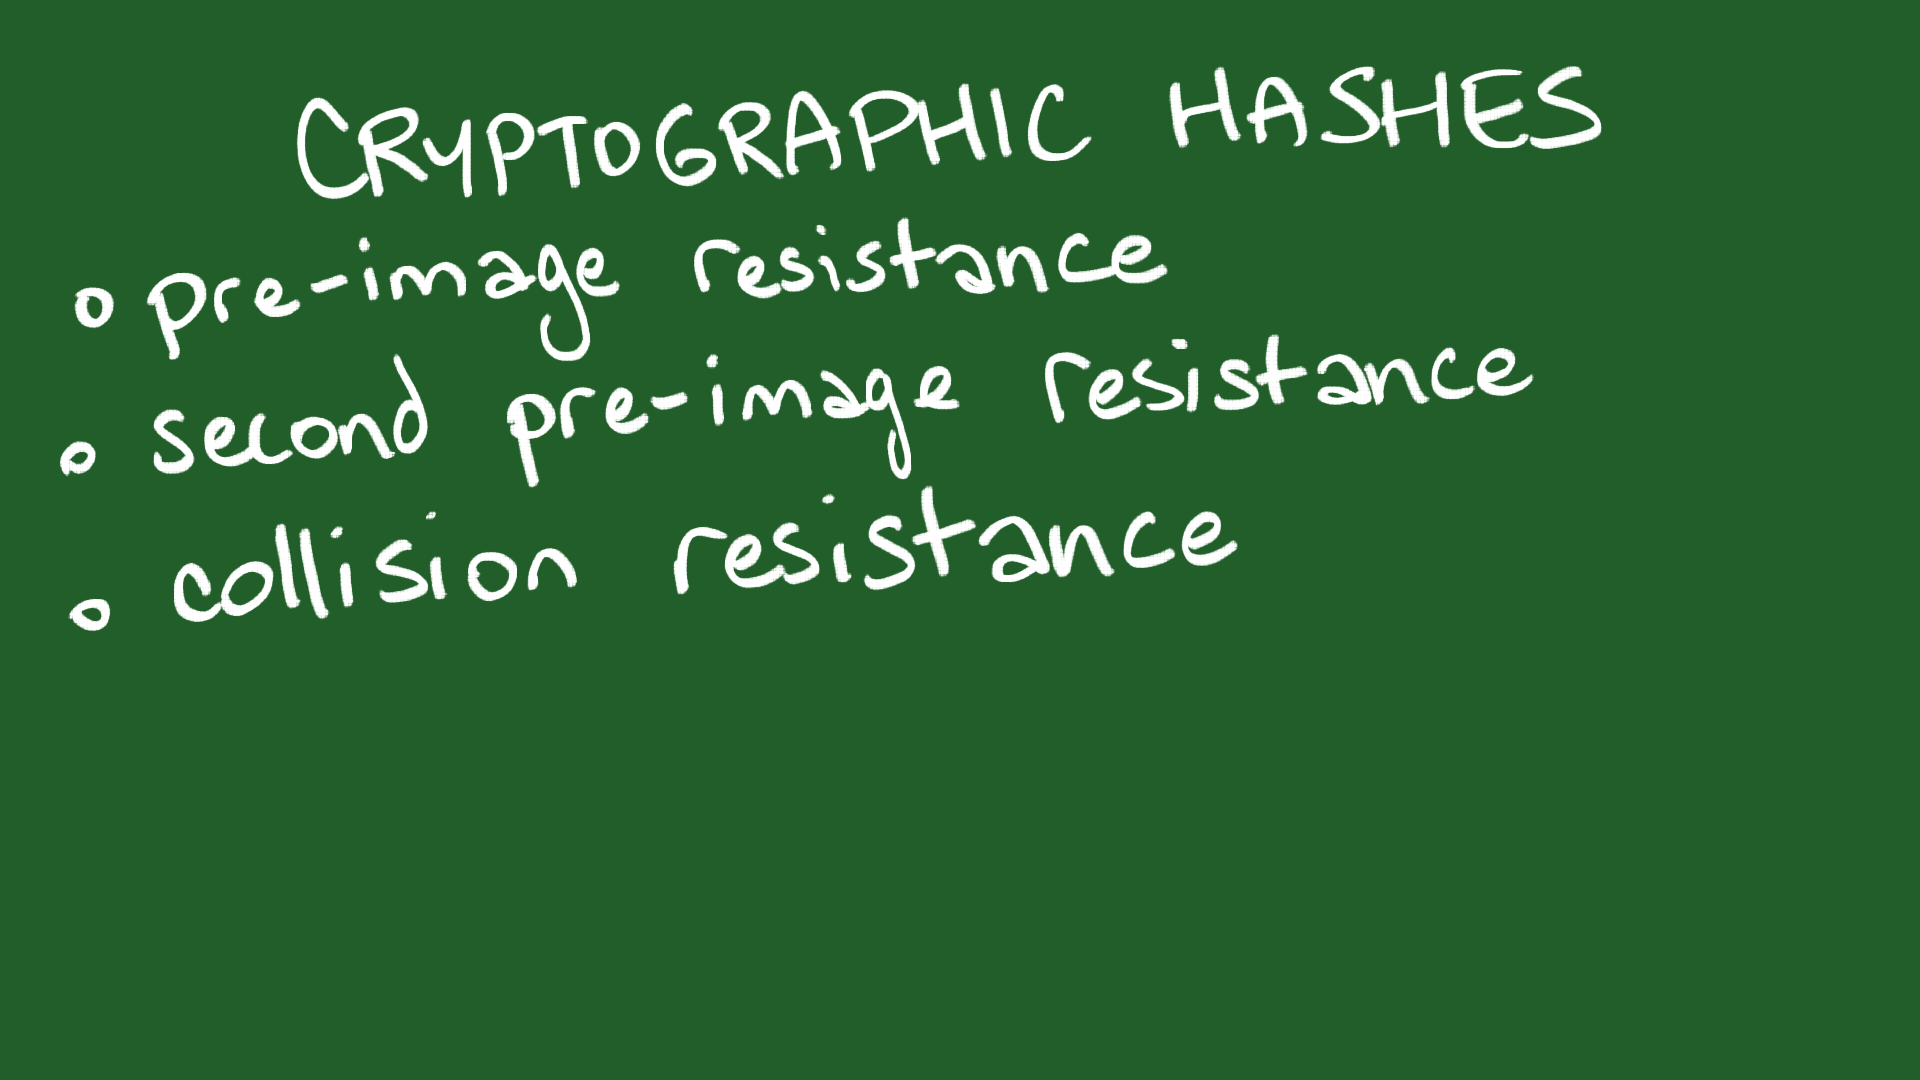 CRYPTOGRAPHIC HASHES
o pre-image resistance
o second pre-image resistance
o collision resistance